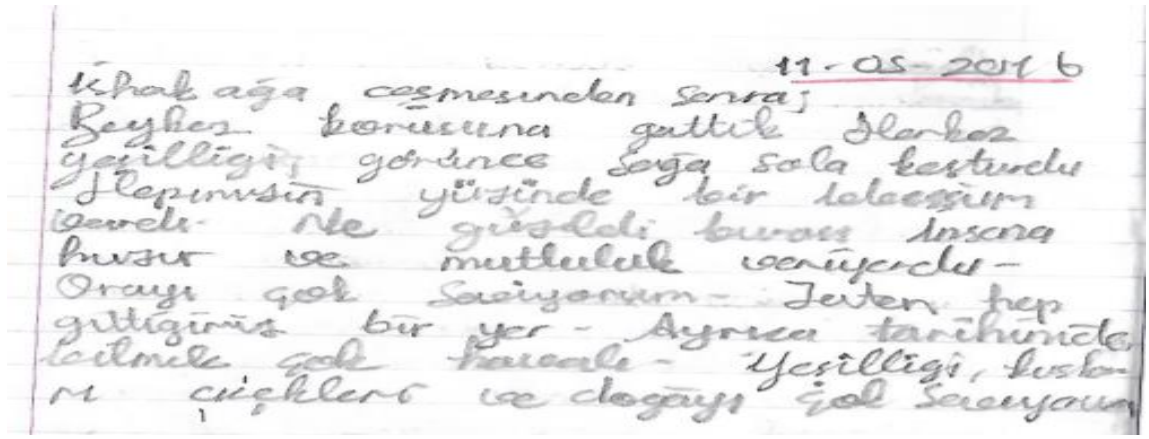 11-05-2016
ishak ağa ceşmesinden sonra;
Beykoz korusuna gittik Herkez
yeşilliği, görünce sağa sola koşturdu
Hepimizin yüzünde bir tebessüm
vardı. Ne güzeldi burası insana
huzur ve mutluluk veriyordu-
Orayı çok Seviyorum- Zaten hep
gittiğimiz bir yer- Ayrıca tarihinide
bilmek çok havalı- Yeşilliği, kuşla-
rı çiçekleri ve doğayı çok Seviyorum